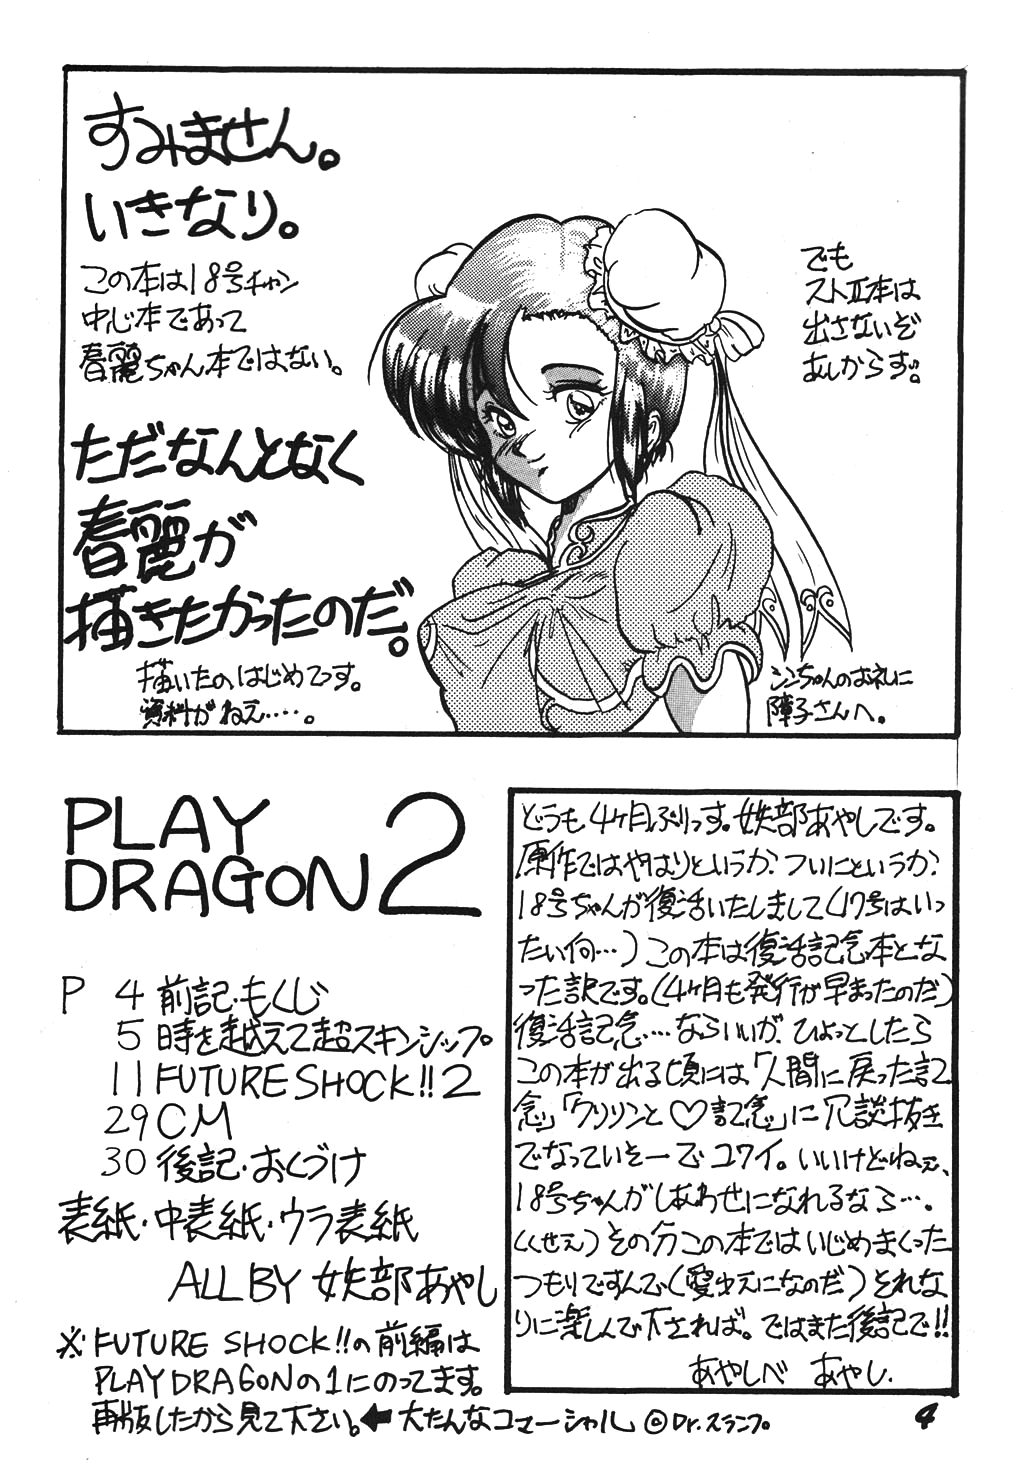 すみません。
いきなり。
この本は18号チャン
中心本であって
春麗ちゃん本ではない。
ただなんとなく
春麗が
描きたかったのだ。
描いたのはじめてっす。
資料がねえ・・・・。
でも
ストⅡ本は
出さないぞ
あしからず。
シンちゃんのお礼に
障子さんへ。
PLAY
DRAGON 2
P 4 前記・もくじ
5 時を越えて超スキンシップ。
11 FUTURE SHOCK!! 2
29 CM
30 後記・おくづけ
表紙・中表紙・ウラ表紙
ALL BY 妖部あやし
※FUTURE SHOCK!!の前編は
PLAY DRAGONの1にのってます。
再版したから見て下さい。←大たんなコマーシャル ©Dr.スランプ。
どうも4ヶ月ぶりっす。妖部あやしです。
原作ではやはりというか?ついにというか?
18号ちゃんが復活いたしまして(17号はいっ
たい何…)この本は復活記念本とな
った訳です。(4ヶ月も発行が早まったのだ)
復活記念・・・・ならいいが、ひょっとしたら
この本が出る頃には「人間に戻った記
念」「クリリンと♡記念」に冗談抜き
でなっていそーでコワイ。いいけどねぇ、
18号ちゃんがしあわせになれるなら・・・。
(くせえ)その分この本ではいじめまくった
つもりですんで(愛ゆえになのだ)それな
りに楽しんで下されば。ではまた後記で!!
あやしべ あやし.
4